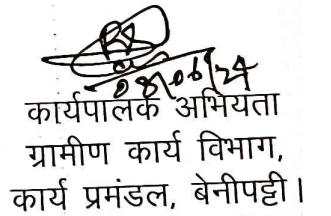 08/06/24
कार्यपालक अभियता
ग्रामीण कार्य विभाग,
कार्य प्रमंडल, बेनीपट्टी ।